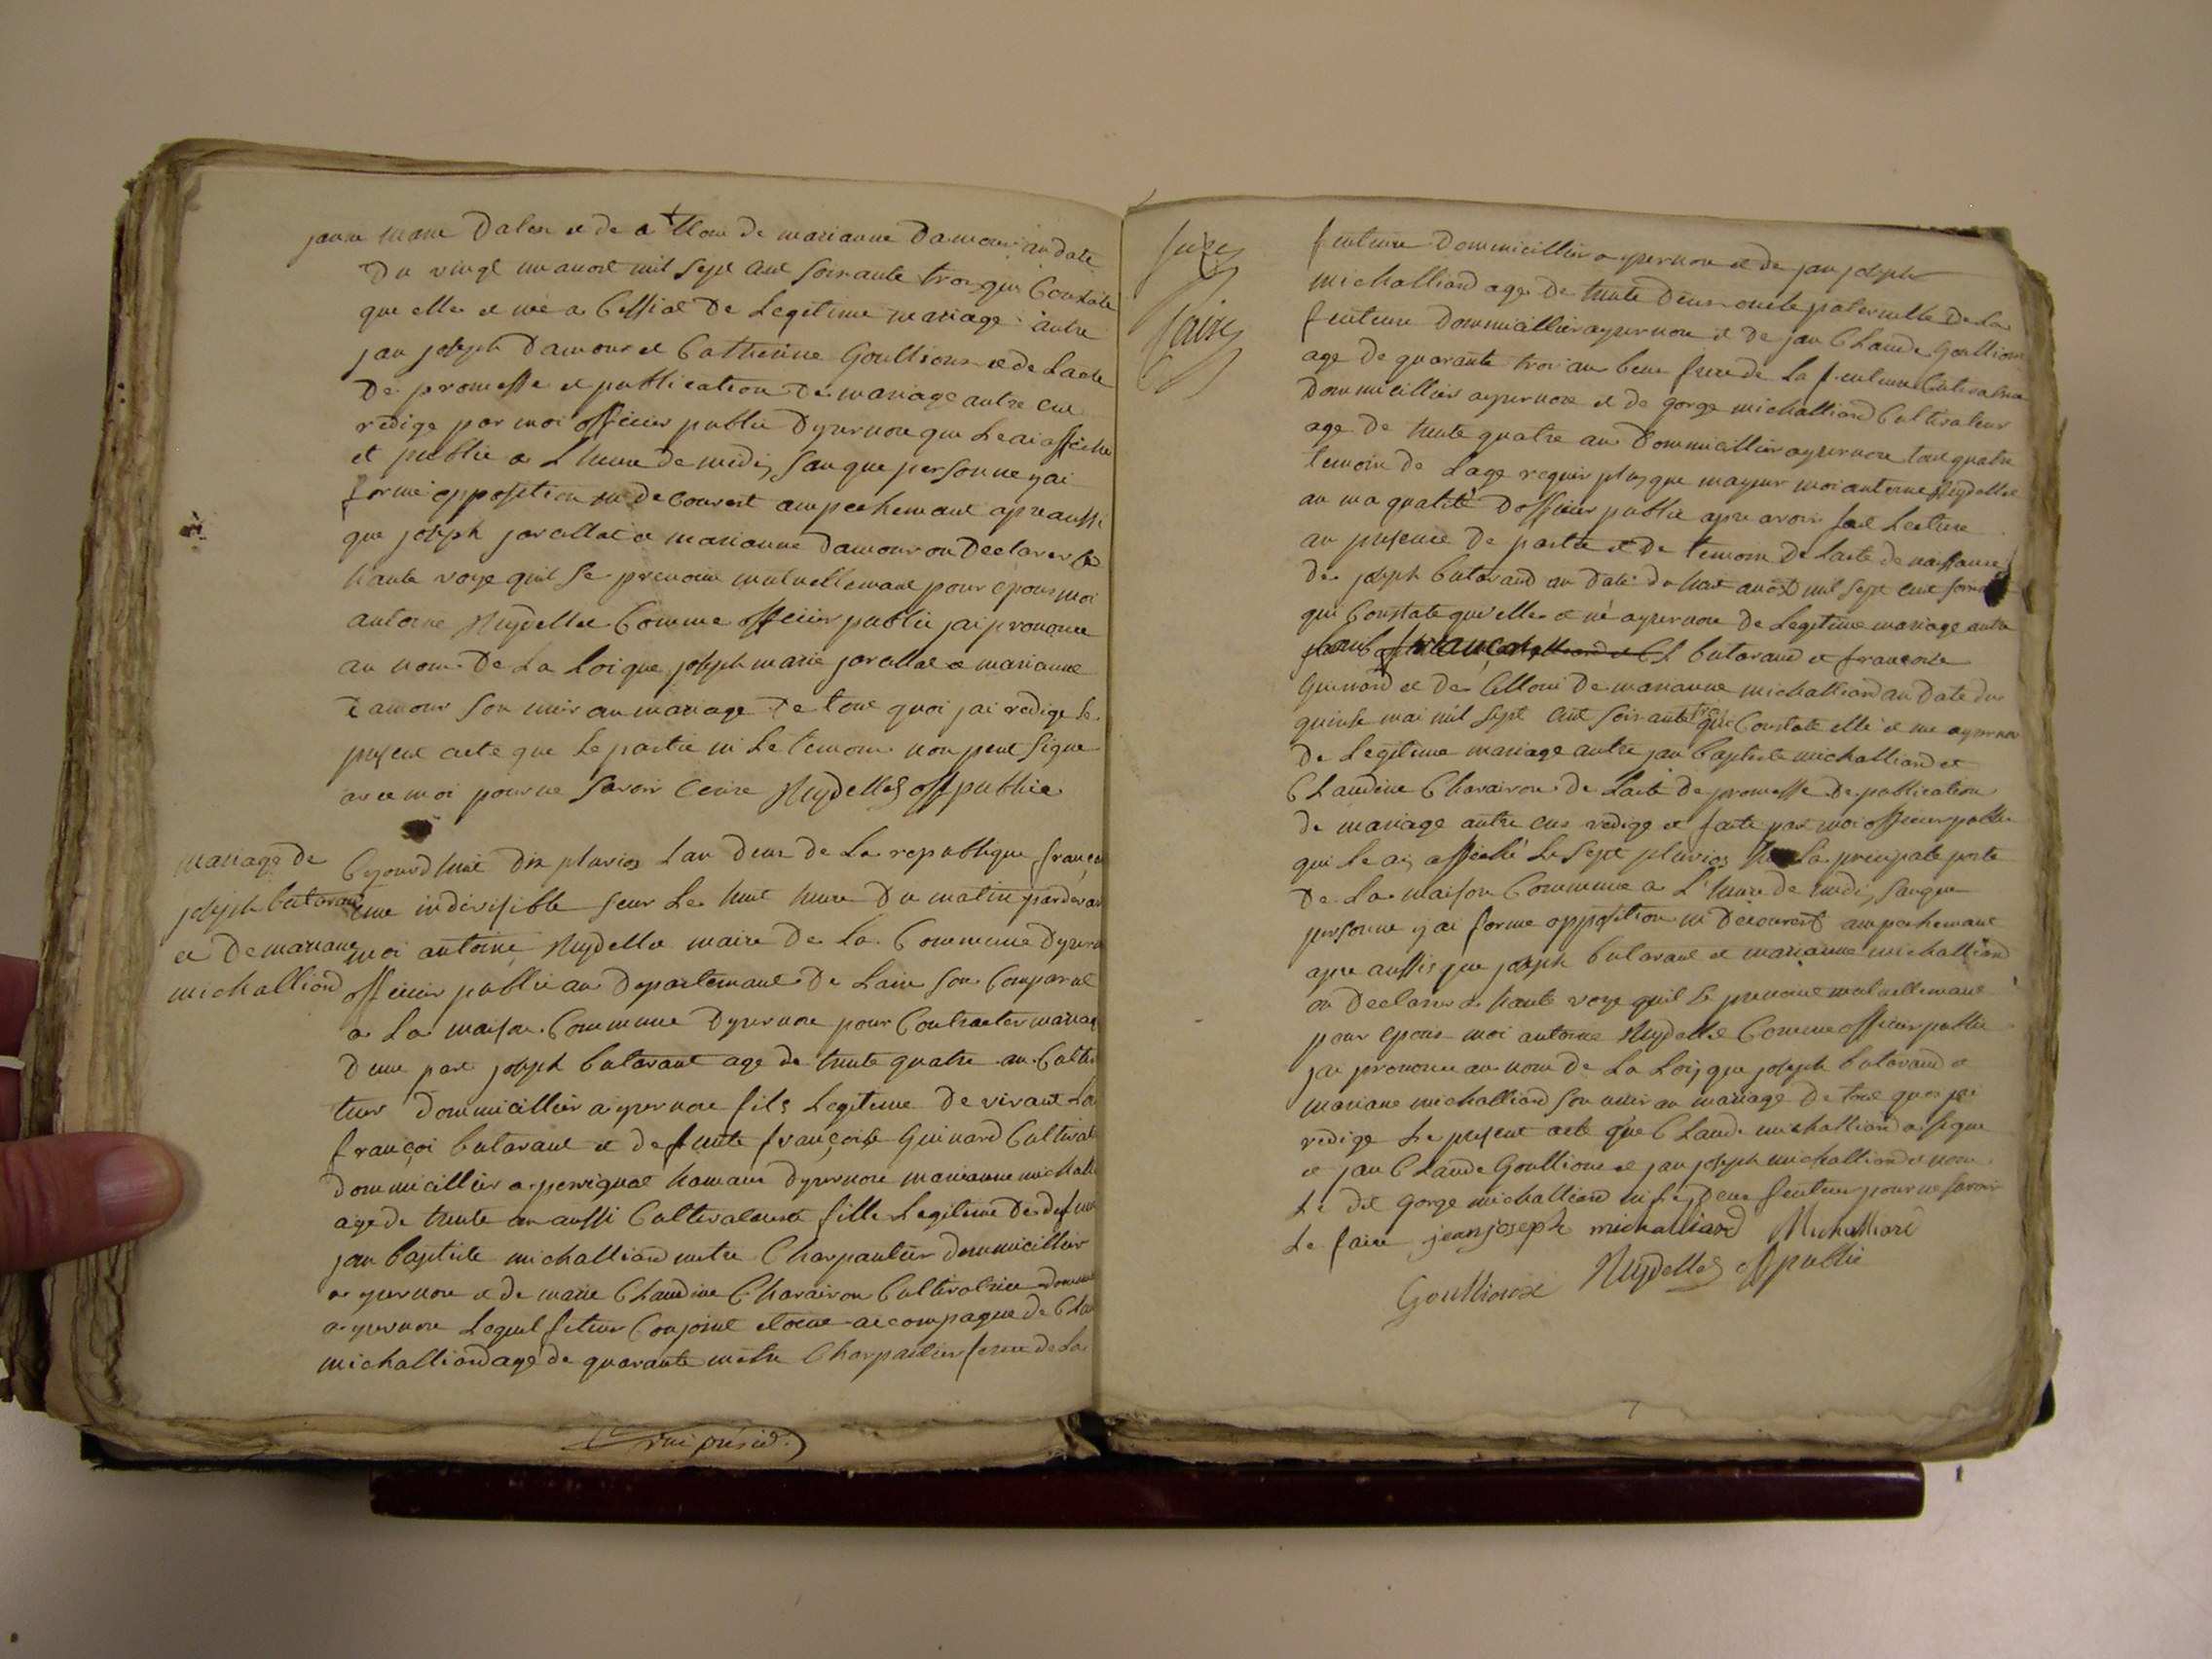 janne marie Dalen et de a llom de marianne Damour au date
Du vingt un auost mil sept cent soirante trois qui Constate
que elle et née a Cessiat De Legitime mariage autre
jan joseph Damour et Catherine Goullioux et de Lacte
De promesse et publication De mariage autre eux
redige par moi officier public Dyzernore que Le ai affiche
et publie a L heure de midi, san que personne y ai
forme opposition ni decouvert ampechemant apre aussi
que joseph jarallat et marianne Damour on Declarer a
haute voye quil se prenoint mutuellemant pour epous moi
antoine Nuydellet Comme officier public jai prononce
au nom De La Loi que joseph marie jarallat et marianne
Damour son unir au mariage De tout quoi jai redige Le
present acte que Le partie ni Le temoin non peut signe
avec moi pour ne savoir Ecrire Nuydellet off public
mariage de
joseph butavand
et De mariane
michalliard
Cejourdhuit dix pluvios Lan Deux de La republique françoi
une indivisible seur Le huit heure Du matin pardevan
moi antoine Nuydellet maire De La Commune Dyzern
officier public au Departemant De Lain son Comparut
a La maison Commune Dyzernore pour Contracter mariag
D une part joseph butavant age de trente quatre an Culti
teur Dommicillier a yzernore fils Legitime De vivant La
françoi butavant et de funte françoise Guinard Cultivat
dommicillier a perignat hamaux Dyzernore marianne michalli
age de trente an aussi Cultivateuse fille Legitime De defunt
jan baptiste michalliard metre Charpantier dommicillier
a yzernore et de marie Claudine Charairon Cultivatrice dommi
a yzernore Lequel futeur Conjoint etoint accompagne de Clau
michalliard age de quarante metre Charpantier frere de La
vui présid.
sure
faire
feuteure Dommicillier a yzernore et de jan joseph
michalliard age De trente Deux oncle paternelle De La
feuteure Dommicillier ayzernore et De jan Claude Goullioux
age De quarante troi an beau frere de La feuteure Cultivateur
Dommicillier ayzernore et de gorge michalliard Cultivateur
age De trente quatre an Dommicillier ayzernore tout quatre
temoin de Lage requis plus que mayeur moi antoine Nuydellet
au ma qualité Dofficier public apre avoir fait Lecture
au presence De partie et De temoin De Lacte de naissance
De joseph butavand au Date du huit auost mil sept cent soirante
qui Constate que elle et né ayzernore De Legitime mariage autre
françoi butavand et françoise
Guinard et De Celloui De marianne michalliard au Date du
quinse mai mil sept cent soirante troi qui Constate elle et ne ayzernore
De Legitime mariage autre jan baptiste michalliard et
Claudine Charairon De Lacte De promesse De publication
de mariage autre eux redige et faite par moi officier public
qui Le ai affiché Le sept pluvios La principale porte
De La maison Commune a L'heure de midi, sanque
personne y ai forme opposition ni Decouvert ampechemant
apre aussis que joseph butavant et marianne michalliard
on Declarer a haute voye quil Se prenoint mutuellemant
pour epous moi antoine Nuydellet Comme officier public
jai prononce au nom De La Loi, que joseph butavand et
mariane michalliard son unir au mariage De tout quoi jai
redige Le present acte que Claude michalliard a signe
et jan Claude Goullioux et jan joseph michalliard et non
Le dit gorge michalliard ni Le Deux feuteur pour ne savoir
Le faire jean joseph michalliard Michalliard
Goullioux Nuydellet off public
7